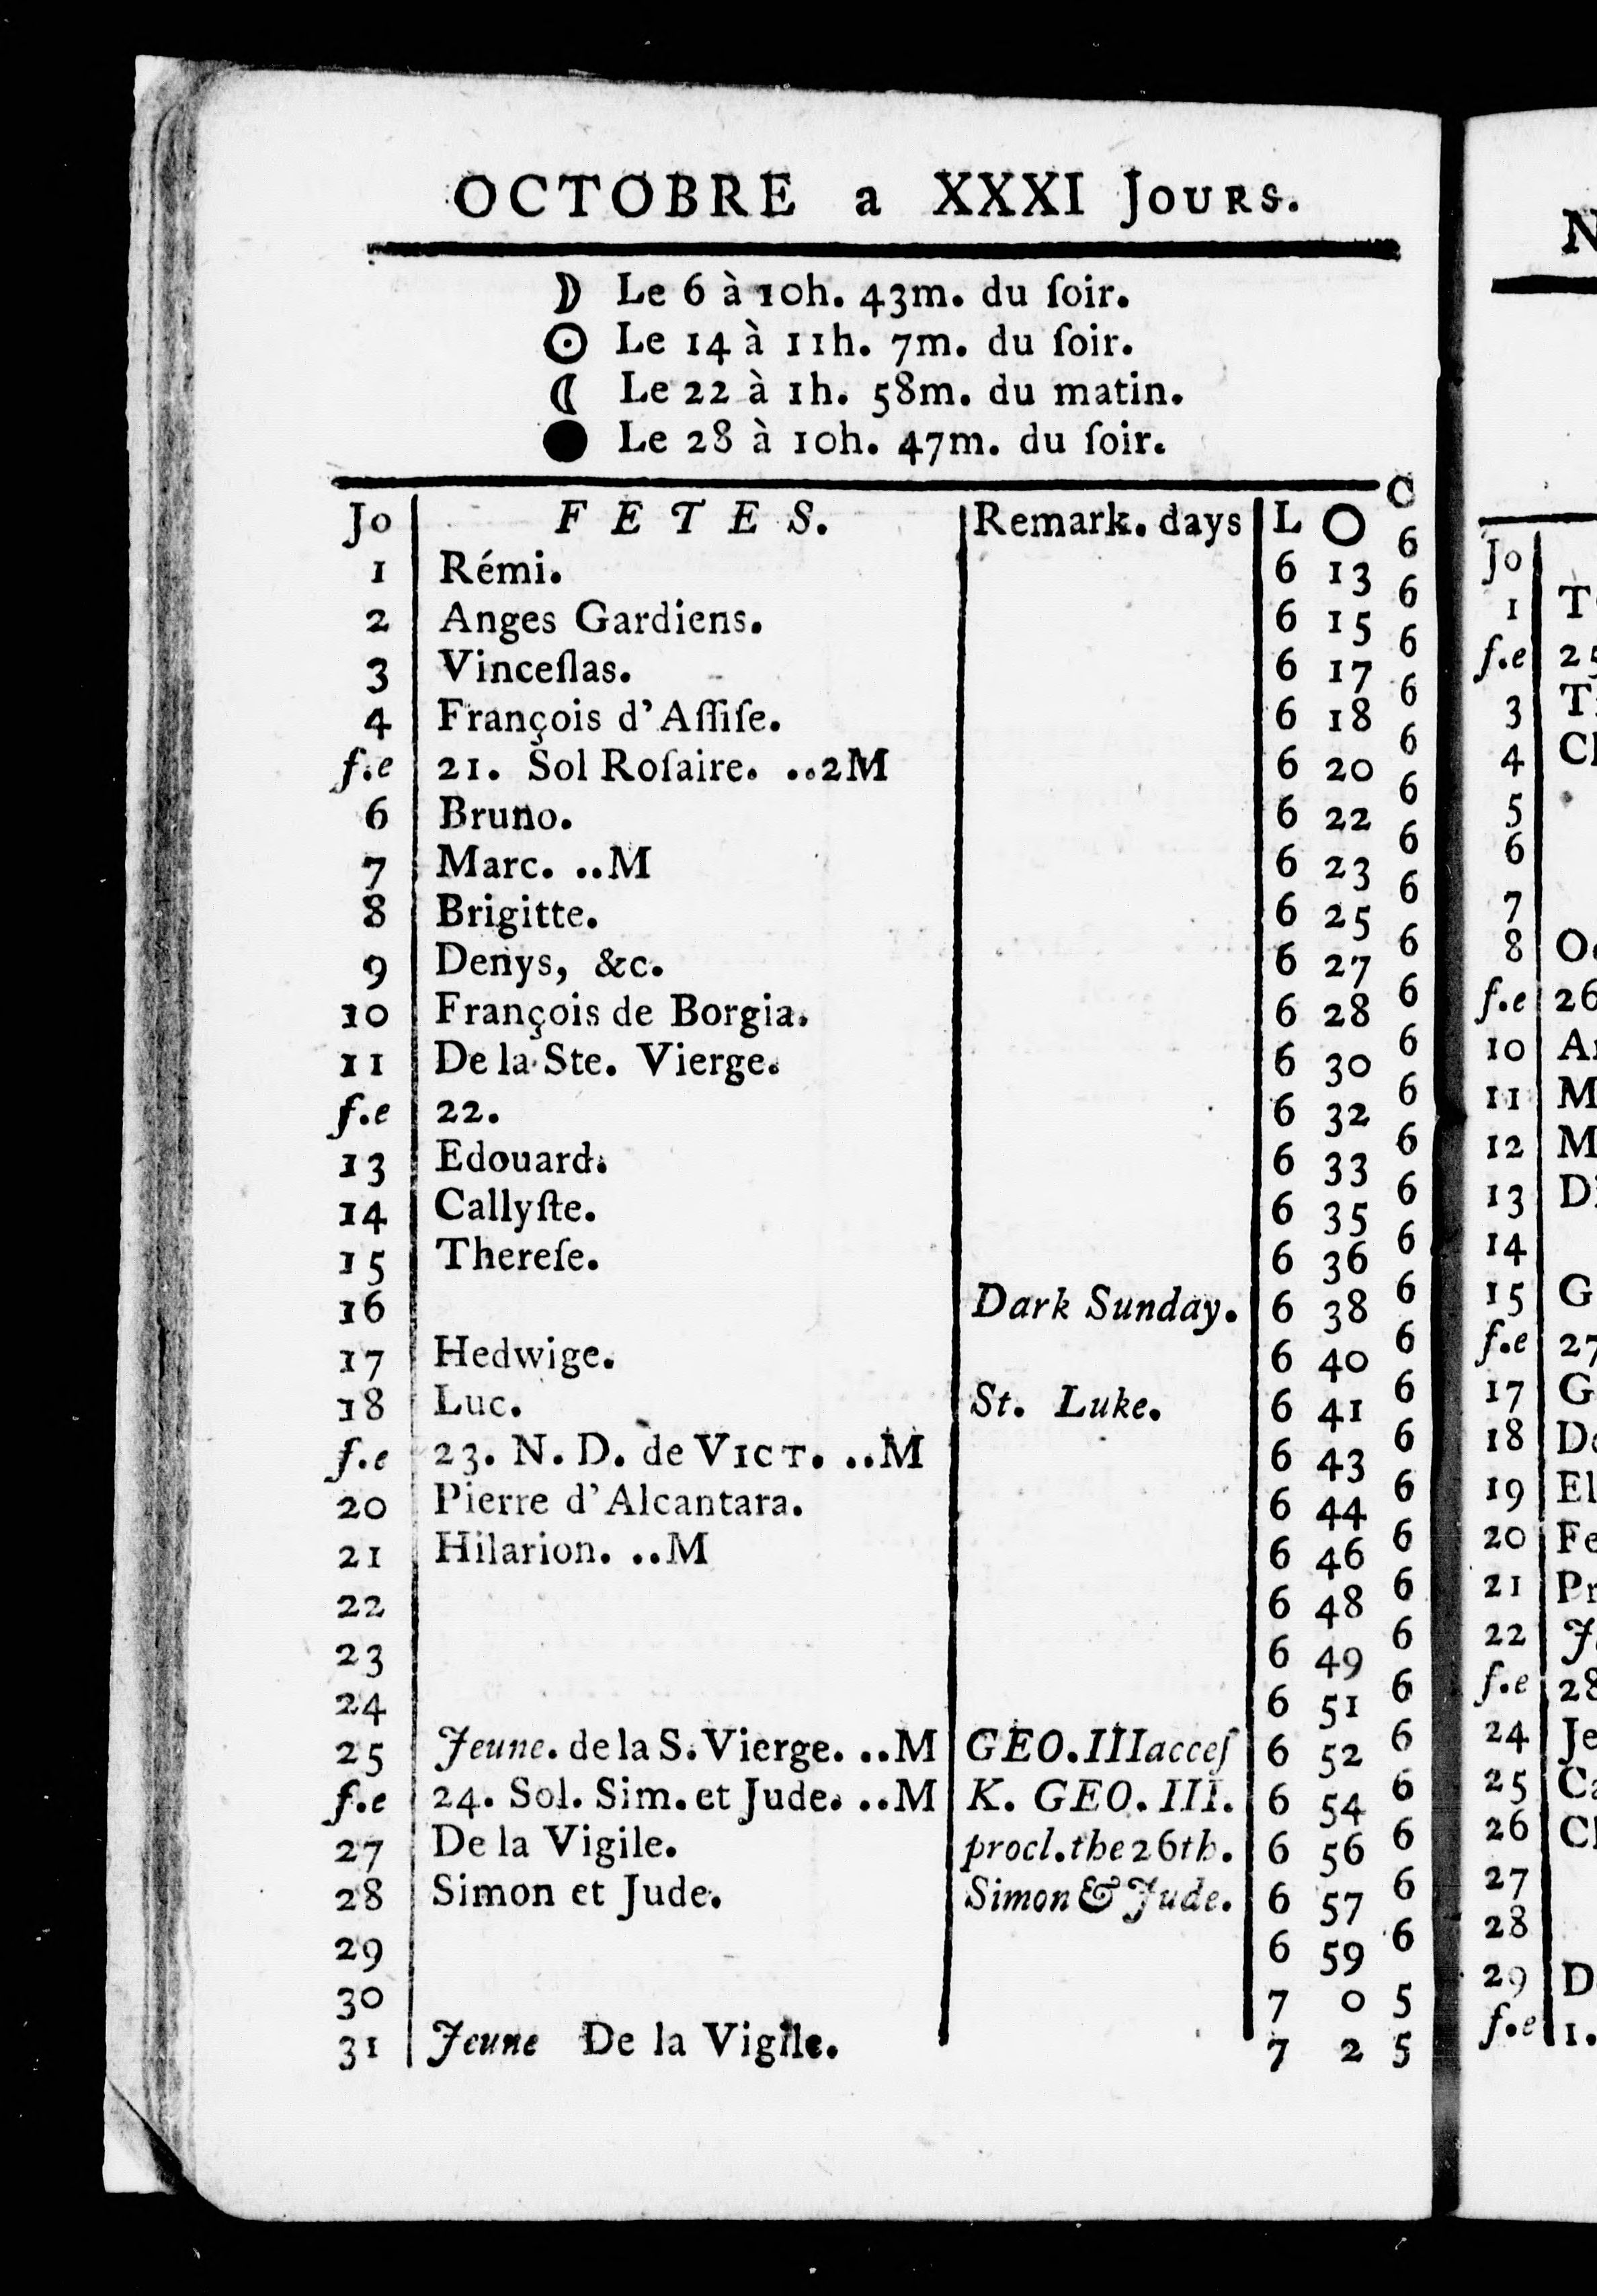 OCTOBRE a XXXI JOURS.
☽ Le 6 à 10h. 43m. du ſoir.
☉ Le 14 à 11h. 7m. du ſoir.
☾ Le 22 à 1h. 58m. du matin.
● Le 28 à 10h. 47m. du ſoir.
Jo FETES. Remark. days L O C
1 Rémi. 6 13 6
2 Anges Gardiens. 6 15 6
3 Vinceſlas. 6 17 6
4 François d'Aſſiſe. 6 18 6
f.e 21. Sol Roſaire. ..2M 6 20 6
6 Bruno. 6 22 6
7 Marc. ..M 6 23 6
8 Brigitte. 6 25 6
9 Denys, &c. 6 27 6
10 François de Borgia. 6 28 6
11 De la Ste. Vierge. 6 30 6
f.e 22. 6 32 6
13 Edouard. 6 33 6
14 Callyſte. 6 35 6
15 Thereſe. 6 36 6
16 Dark Sunday. 6 38 6
17 Hedwige. 6 40 6
18 Luc. St. Luke. 6 41 6
f.e 23. N. D. de VICT. ..M 6 43 6
20 Pierre d'Alcantara. 6 44 6
21 Hilarion. ..M 6 46 6
22 6 48 6
23 6 49 6
24 6 51 6
25 Jeune. de la S. Vierge. ..M GEO. III acceſ 6 52 6
f.e 24. Sol. Sim. et Jude. ..M K. GEO. III. 6 54 6
27 De la Vigile. procl. the 26th. 6 56 6
28 Simon et Jude. Simon & Jude. 6 57 6
29 6 59 6
30 7 0 5
31 Jeune De la Vigile. 7 2 5
N
Jo
1
f.e
3
4
5
6
7
8
f.e 26
10
11
12
13
14
15
f.e 27
17
18
19
20
21
22
f.e 28
24
25
26
27
28
29
f.e 1.